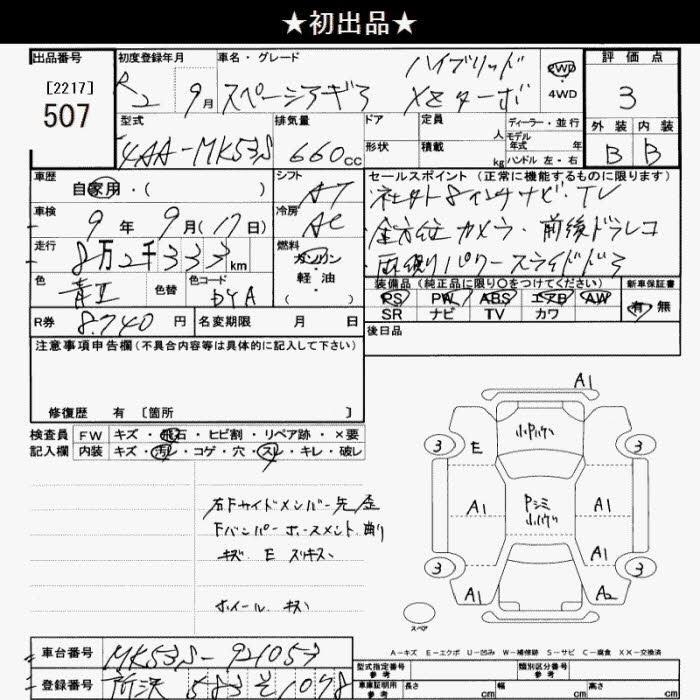 ★初出品★
出品番号
[2217]
507
初度登録年月
R2 9月
車名・グレード
スペーシアギア
ハイブリッド
XZターボ
2WD
4WD
評価点
3
外装 内装
B B
型式
4AA-MK53S
排気量
660cc
ドア
形状
定員 人
積載 kg
ディーラー・並行
モデル
年式 年
ハンドル 左・右
車歴
自家用・( )
シフト
AT
セールスポイント (正常に機能するものに限ります)
社外8インチナビ・TV
全方位カメラ・前後ドラレコ
両側パワースライドドア
車検
9年 9月(17日)
冷房
AC
走行
8万2千333km
燃料
ガソリン
軽・油
( )
色
青II
色替
色コード
DYA
装備品 (純正品に限り○をつけてください)
PS PW ABS エアB AW
SR ナビ TV カワ
新車保証書
有 無
R券 8.740円
名変期限 月 日
後日品
注意事項申告欄 (不具合内容等は具体的に記入して下さい)
修復歴 有 [箇所 ]
検査員 FW キズ・飛石・ヒビ割・リペア跡・×要
記入欄 内装 キズ・汚レ・コゲ・穴・スレ・キレ・破レ
右Fサイドメンバー先歪
Fバンパーホースメント曲り
キズ E スリキズ
ホイール キズ
A1
小パウハ
3 E 3
A1 Pシミ A1
小パウハ
A1
3 3
A1 A2
スペア
A-キズ E-エクボ U-凹み W-補修跡 S-サビ C-腐食 XX-交換済
車台番号 MK53S-921057
登録番号 所沢 583 そ 1078
型式指定番号
参考
類別区分番号
参考
車庫証明用
参考
長さ cm 幅 cm 高さ cm